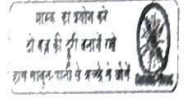 मास्क का प्रयोग करें
दो गज की दूरी बनायें रखे
हाथ साबुन पानी से अच्छे से धोयें